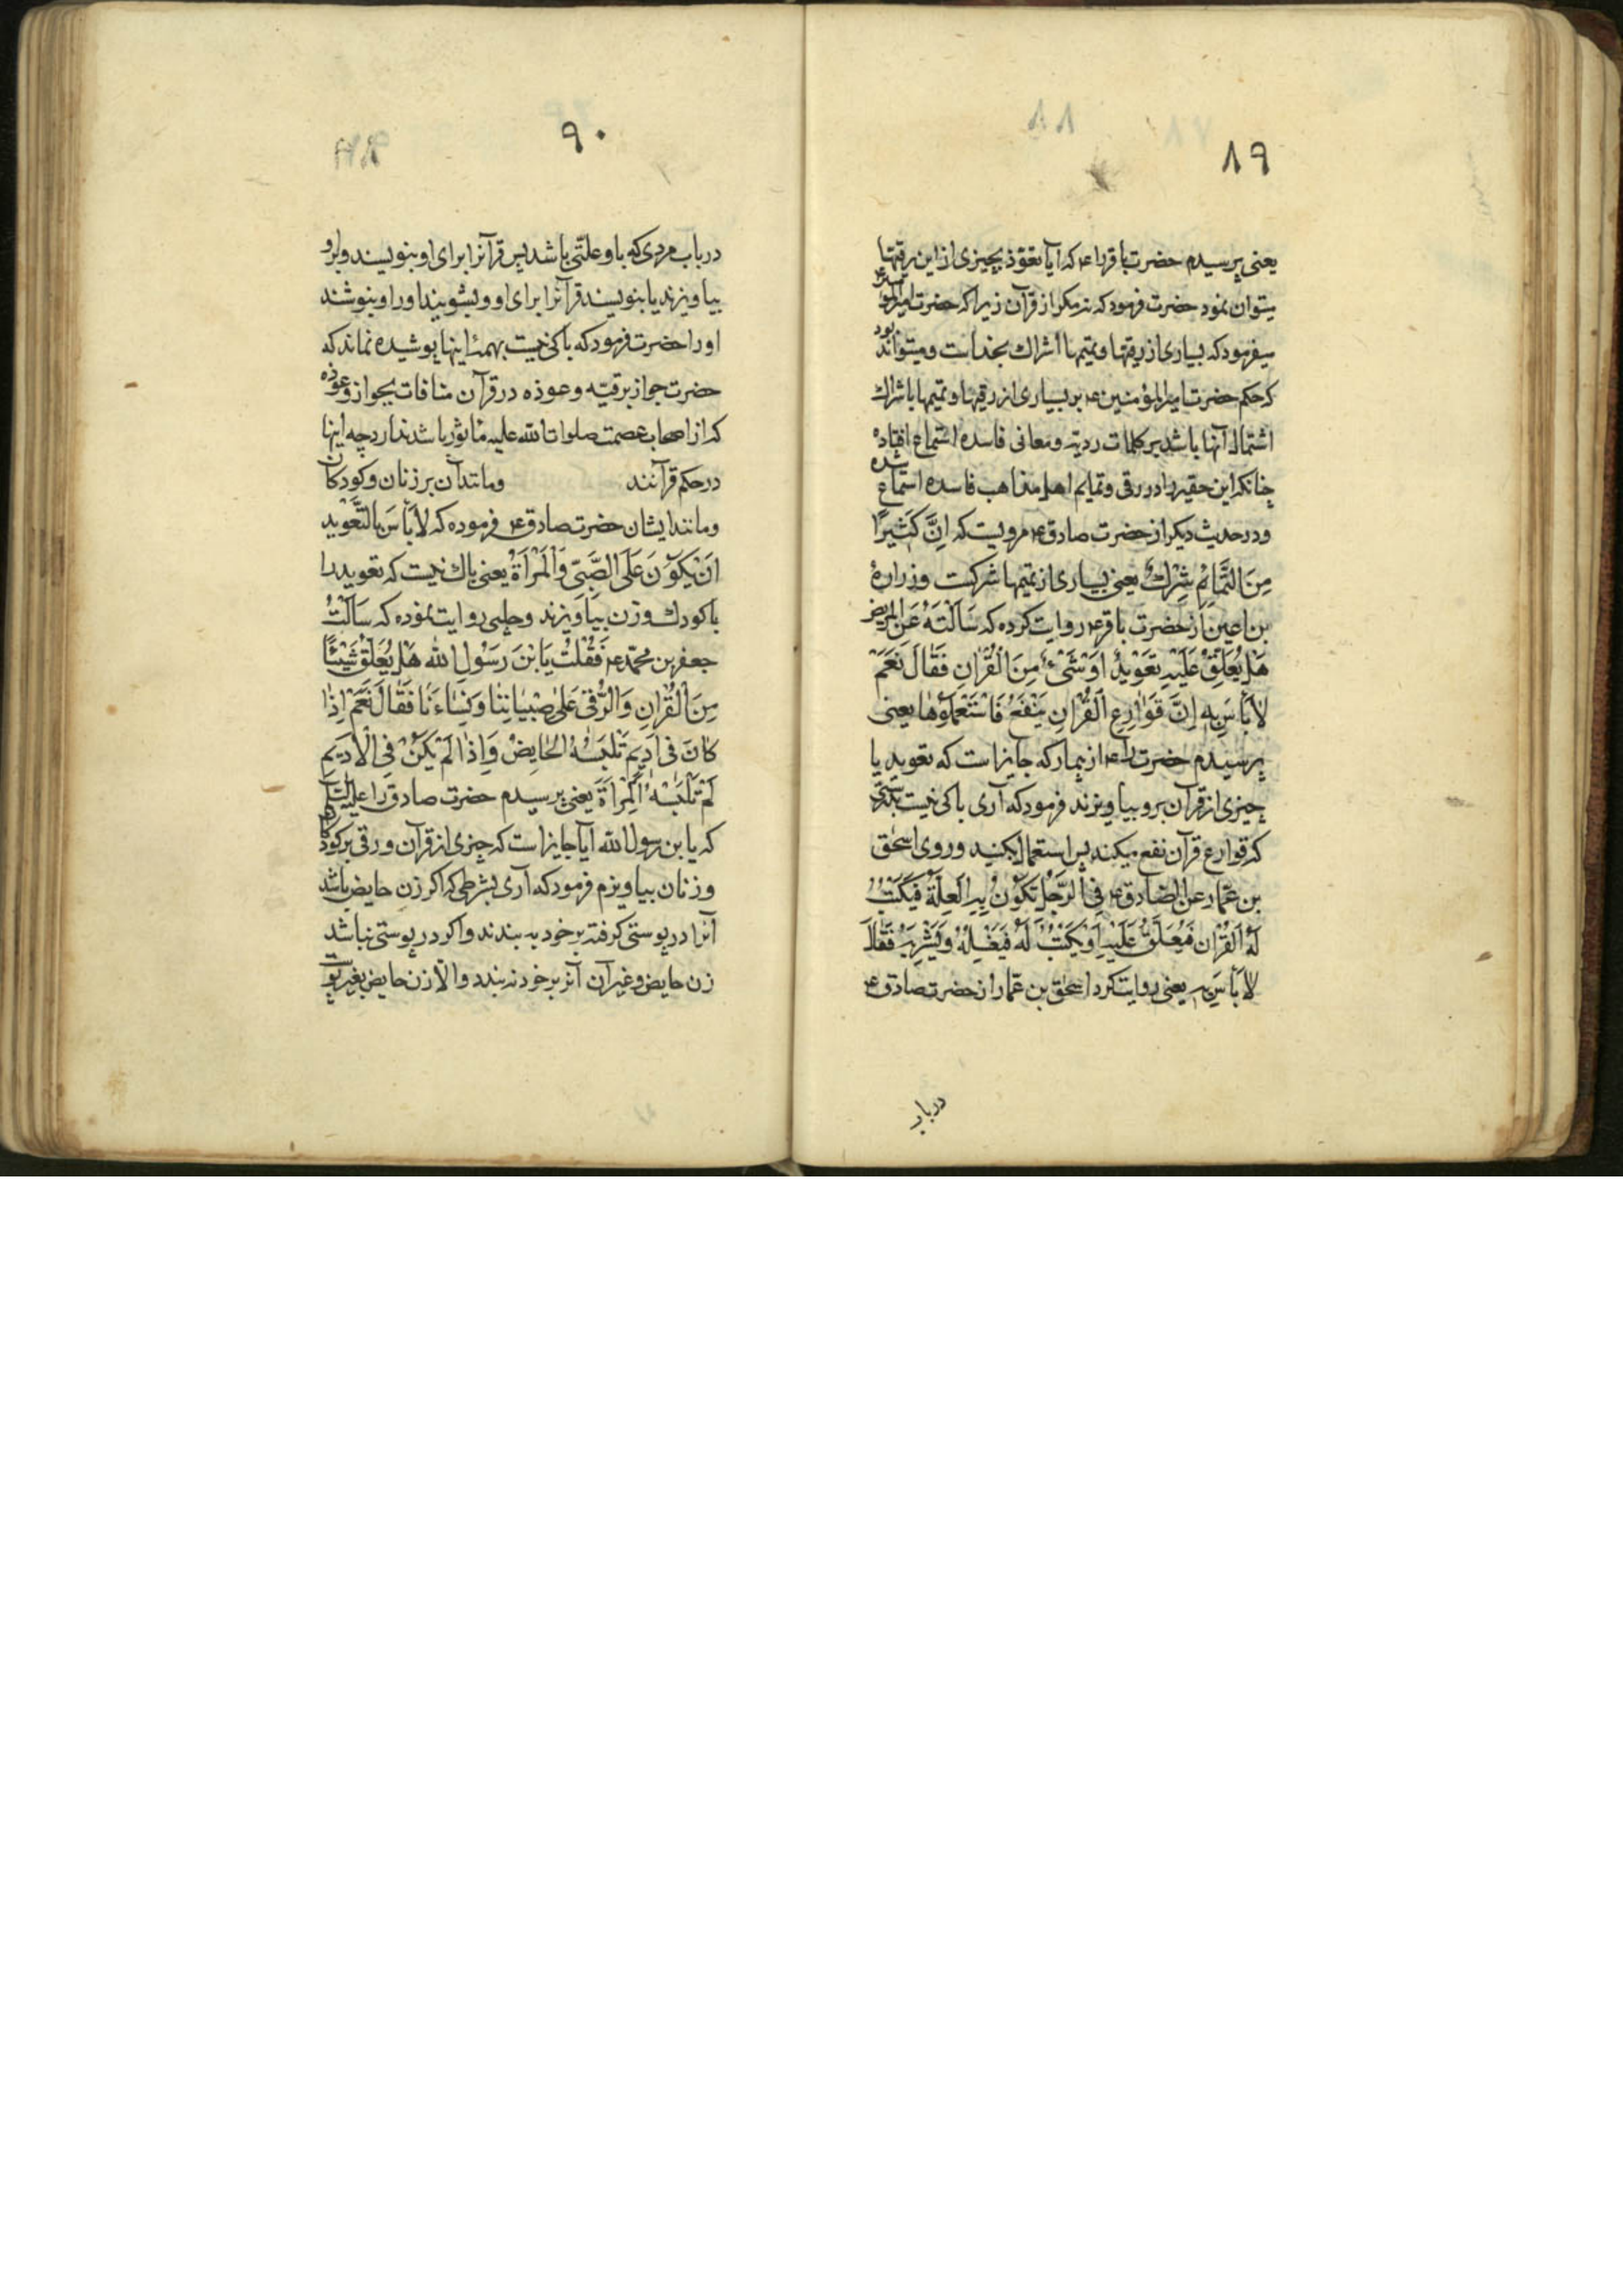 ٨٩
یعنی پرسیدم حضرت باقر را ع که آیا تعوّذ بچیزی از این رقیتها
میتوان نمود حضرت فرمود که نه مکر از قرآن زیرا که حضرت امیر المؤمنین ع
میفرمود که بسیاری از رقیتها و تمیمها اشراک بخداست و میتواند بود
که حکم حضرت امیر المؤمنین ع بر بسیاری از رقیها و تمیمها باشراک
اشتمال آنها باشد بر کلمات ردیه و معانی فاسده استماع افتاده
چنانکه این حقیر را در رقی و تمایم اهل مذاهب فاسده استماع شده
و در حدیث دیکر از حضرت صادق ع مرویست که اِنَّ کَثیرًا
مِنَ التَّمائِمُ شِرْكٌ یعنی بسیاری از تمیمها شرکت و زرارهٔ
بن اعین از حضرت باقر ع روایت کرده که سَاَلْتَهُ عَنِ المریض
هَلْ یُعَلِّقُ عَلَیْهِ تَعْویذٌ اَوْ شَیْءٌ مِنَ الْقُرْانِ فَقَالَ نَعَمْ
لاٰ بَاْسَ بِهِ اِنَّ قَوٰارِعَ الْقُرْانِ یَنْفَعُ فَاسْتَعْمِلُوهٰا یعنی
پرسیدم حضرت را ع از بیمار که جایز است که تعوید یا
چیزی از قرآن برو بیاویزند فرمود که آری باکی نیست بدرستی
که قوارع قرآن نفع میکند پس استعمال کنید و روی اسحٰق
بن عمّار عن الصّادق ع فِی الرَّجُلِ تَکُونُ بِهِ الْعِلَّةُ فَیُکْتَبُ
لَهُ الْقُرْانُ فَیُعَلَّقُ عَلَیْهِ اَوْ یُکْتَبُ لَهُ فَیَغْسِلُهُ وَ یَشْرِبَهُ فَقٰالَ
لاٰ بَاْسَ بِهِ یعنی روایت کرد اسحٰق بن عمّار از حضرت صادق ع
درباب
٩٠
درباب مردی که باو علّتی باشد پس قرآنرا برای او بنویسند و برو
بیاویزند یا بنویسند قرآنرا برای او و بشویند او را و بنوشند
او را حضرت فرمود که باکی نیست بهمهٔ اینها پوشیده نماند که
حضرت جواز برقیّه و عوذه در قرآن منافات بجواز و عوذه
که از اصحاب عصمت صلوات الله علیه مأثور باشد ندارد چه اینها
در حکم قرآنند و مانند آن بر زنان و کودکان
و مانند ایشان حضرت صادق ع فرموده که لاٰ بَاْسَ بِالتَّعْویدِ
اَنْ یَکُونَ عَلَی الصَّبِیّ وَ الْمَرْاَةُ یعنی باک نیست که تعوید را
با کودک و زن بیاویزند و حلبی روایت نموده که سَاَلْتُ
جعفر بن محمّد ع فَقُلْتُ یَا بْنَ رَسُولِ اللهِ هَلْ یُعَلَّقُ شَیْئًا
مِنَ الْقُرْانِ وَ الرُّقیٰ عَلیٰ صِبْیَانِنَا وَ نِسٰاءَنَا فَقٰالَ نَعَمْ اِذٰا
کٰانَ فی اَدیمٍ تَلْبَسُهُ الْحٰایِضُ وَ اِذٰا لَمْ یَکُنْ فِی الْاَدیمِ
لَمْ تَلْبَسْهُ الْمِرْاَةُ یعنی پرسیدم حضرت صادق را علیه السّلم
که یا بن رسول الله آیا جایز است که چیزی از قرآن و رقی بر کودکان
و زنان بیاویزم فرمود که آری بشرطی که اکر زن حایض باشد
آنرا در پوستی کرفته بر خود به بندند و اکر در پوستی نباشد
زن حایض و غیر آن آنرا بر خود نه بندد و الّا زن حایض بغیر پوست